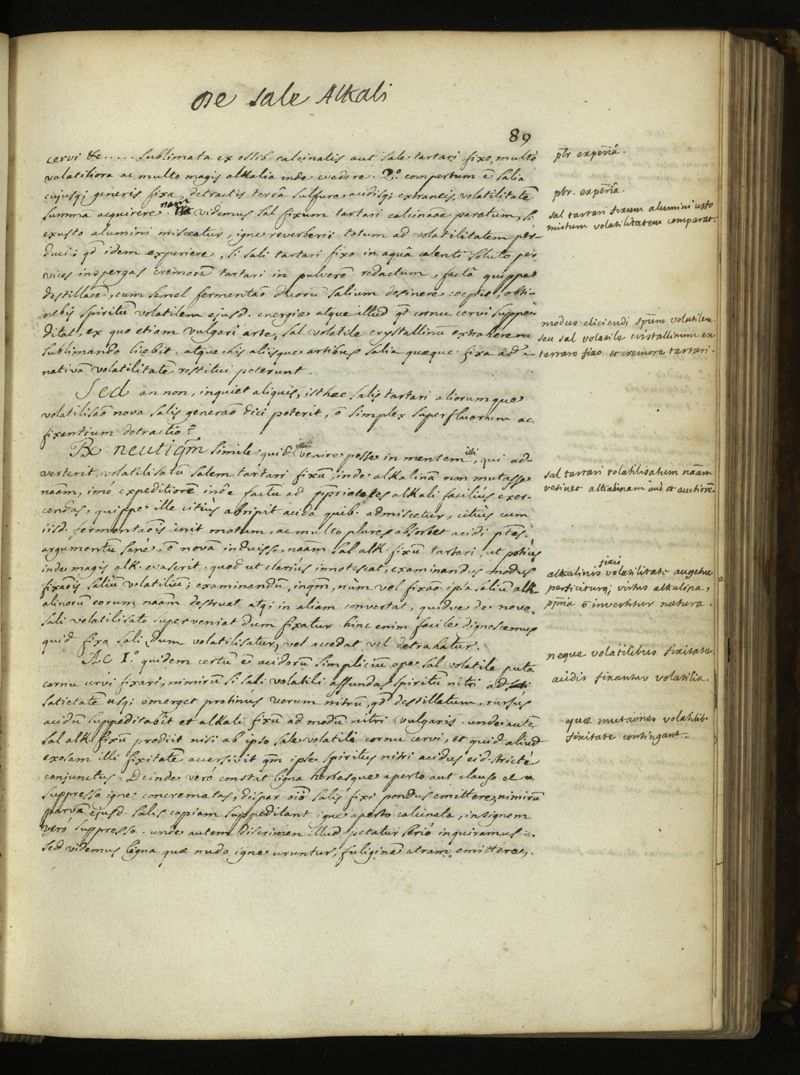 De Sale Alkali
89
cervi &c..... sublimata ex ossib. calcinatis aut sale tartari fixo, multo
volatiliora ac multo magis alkalia inde evadere. compertum ē salia
cujusqȝ generis fixa, detractis terrâ sulfure, acidisqȝ extraneis, volatilitatē
summā acquirere. nam videmus sal fixum tartari calcinaōe paratum, si
exusto alumini misceatur, igne reverberii totum ad volatilitatem per-
duci; qd idem experiere, si sali tartari fixo in aquâ calenti soluto per
vices inspergas cremorē tartari in pulverē redactum, factâ quippe
destillaōe, cum simel fermentaō duorū salium desinere coeperit, obti-
nebis spiritū volatilem ejusd. energiae atque illud qd cornu cervi suppe-
ditat, ex quo etiam vulgari arte, sal volatile crystallinū extrahere
sublimando licebit. atque his aliisque artibus salia quaeque fixa ad
nativā volatilitatē restitui poterunt.
Sed an non, inquiet aliquis, isthaec salis tartari aliorumque
volatilisaō nova salis generaō dici poterit, ō simplex superfluorum ac
fixantium detractio?
Rx neutiqm simile quid venire posse in mentem illi, qui ad-
verterit, volatilisatū salem tartari fixū, inde alkalinā non mutasse
naām, imo expeditiorē inde factū ad pprietates alkali facilius exer-
cendas, quippe ille citius abripit acida quib. admiscetur, citius cum
iisd. fermentaōis init motum, ac multo plures absorbet acidi ptes.
argumentū sane, ō novā induisse naām sal alk. fixū tartari, ut potius
inde magis alk. evaserit. quod ut clarius innotescat, examinandus modus
fixaōis saliū volatiliū; examinandū, inqm, nùm vel fixaō ipsa saliū alk-
alinorū eorum naām destruat atqȝ in aliam convertat, quidve de novo
sali volatilisato superveniat dum fixatur. hinc enim facile dignoscemus
quid fixa sali dum volatilisatur, vel accedat vel detrahatur.
Ac 1.º quidem certū ē acidorū simplicium ope sal volatile putà
cornu cervi fixari, nimirū si sali volatili affundas spiritū nitri ad
satietatē usqȝ emerget protinus verum nitrū, qd destillatum, rursus
acidū suppeditabit et alkali fixū ad modū nitri vulgaris. unde autē
sal alk. fixū prodiit nisi ab ipso sale volatili cornu cervi, et quid aliud
exolam illi fixitatē accersivit qm ipse spiritus nitri acidus eid. strictè
conjunctus. Deinde vero constat ligna herbasque aperto aut clauso et
suppresso igne concremata, dispar oīo salis fixi pondus emittere, nimirū
parvā ejusd. salis copiam suppeditant igne aperto calcinata, insignem
vero suppresso. unde autem discrimen illud petatur seriò inquiramus.
sed videmus ligna quae nudo igne uruntur, fuliginē atram emittere,
pbr. experiā.
pbr. experiā.
sal tartari fixum alumini usto
mistum volatilitatem comparat.
modus eliciendi spūm volatilem
seu sal volatile cristallinum ex
tartaro fixo et cremore tartari.
sal tartari volatilisatum naām
retinet alkalinam
alkalinis fixis volatilitate augetur
perficiturqȝ virtus alkalina,
ō invertitur natura.
neque volatilibus fixitate.
acidis fixantur volatilia.
quae mutaōnes volatilib.
fixitate contingant.